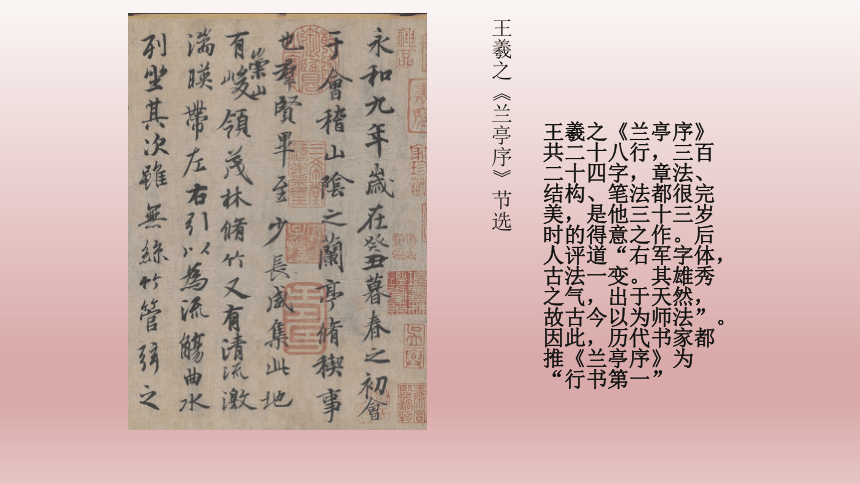 永和九年歲在癸丑暮春之初會
于會稽山陰之蘭亭脩稧事
也羣賢畢至少長咸集此地
有崇山峻領茂林脩竹又有清流激
湍暎帶左右引以為流觴曲水
列坐其次雖無絲竹管弦之
王羲之《兰亭序》节选
王羲之《兰亭序》
共二十八行，三百
二十四字，章法、
结构、笔法都很完
美，是他三十三岁
时的得意之作。后
人评道“右军字体，
古法一变。其雄秀
之气，出于天然，
故古今以为师法”。
因此，历代书家都
推《兰亭序》为
“行书第一”